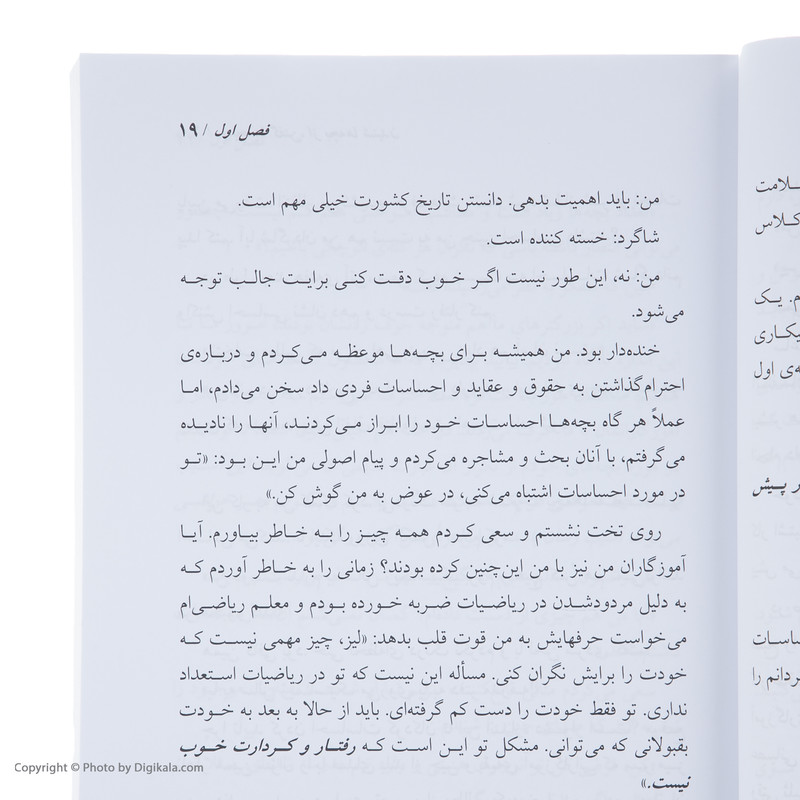 فصل اول / ۱۹
من: باید اهمیت بدهی. دانستن تاریخ کشورت خیلی مهم است.
شاگرد: خسته کننده است.
من: نه، این طور نیست اگر خوب دقت کنی برایت جالب توجه
می‌شود.
خنده‌دار بود. من همیشه برای بچه‌ها موعظه می‌کردم و درباره‌ی
احترام‌گذاشتن به حقوق و عقاید و احساسات فردی داد سخن می‌دادم، اما
عملاً هر گاه بچه‌ها احساسات خود را ابراز می‌کردند، آنها را نادیده
می‌گرفتم، با آنان بحث و مشاجره می‌کردم و پیام اصولی من این بود: «تو
در مورد احساسات اشتباه می‌کنی، در عوض به من گوش کن.»
روی تخت نشستم و سعی کردم همه چیز را به خاطر بیاورم. آیا
آموزگاران من نیز با من این‌چنین کرده بودند؟ زمانی را به خاطر آوردم که
به دلیل مردودشدن در ریاضیات ضربه خورده بودم و معلم ریاضی‌ام
می‌خواست حرفهایش به من قوت قلب بدهد: «لیز، چیز مهمی نیست که
خودت را برایش نگران کنی. مسأله این نیست که تو در ریاضیات استعداد
نداری. تو فقط خودت را دست کم گرفته‌ای. باید از حالا به بعد به خودت
بقبولانی که می‌توانی. مشکل تو این است که رفتار و کردارت خوب
نیست.»
کلاس
یک
ی اول
پیش
را
Copyright © Photo by Digikala.com